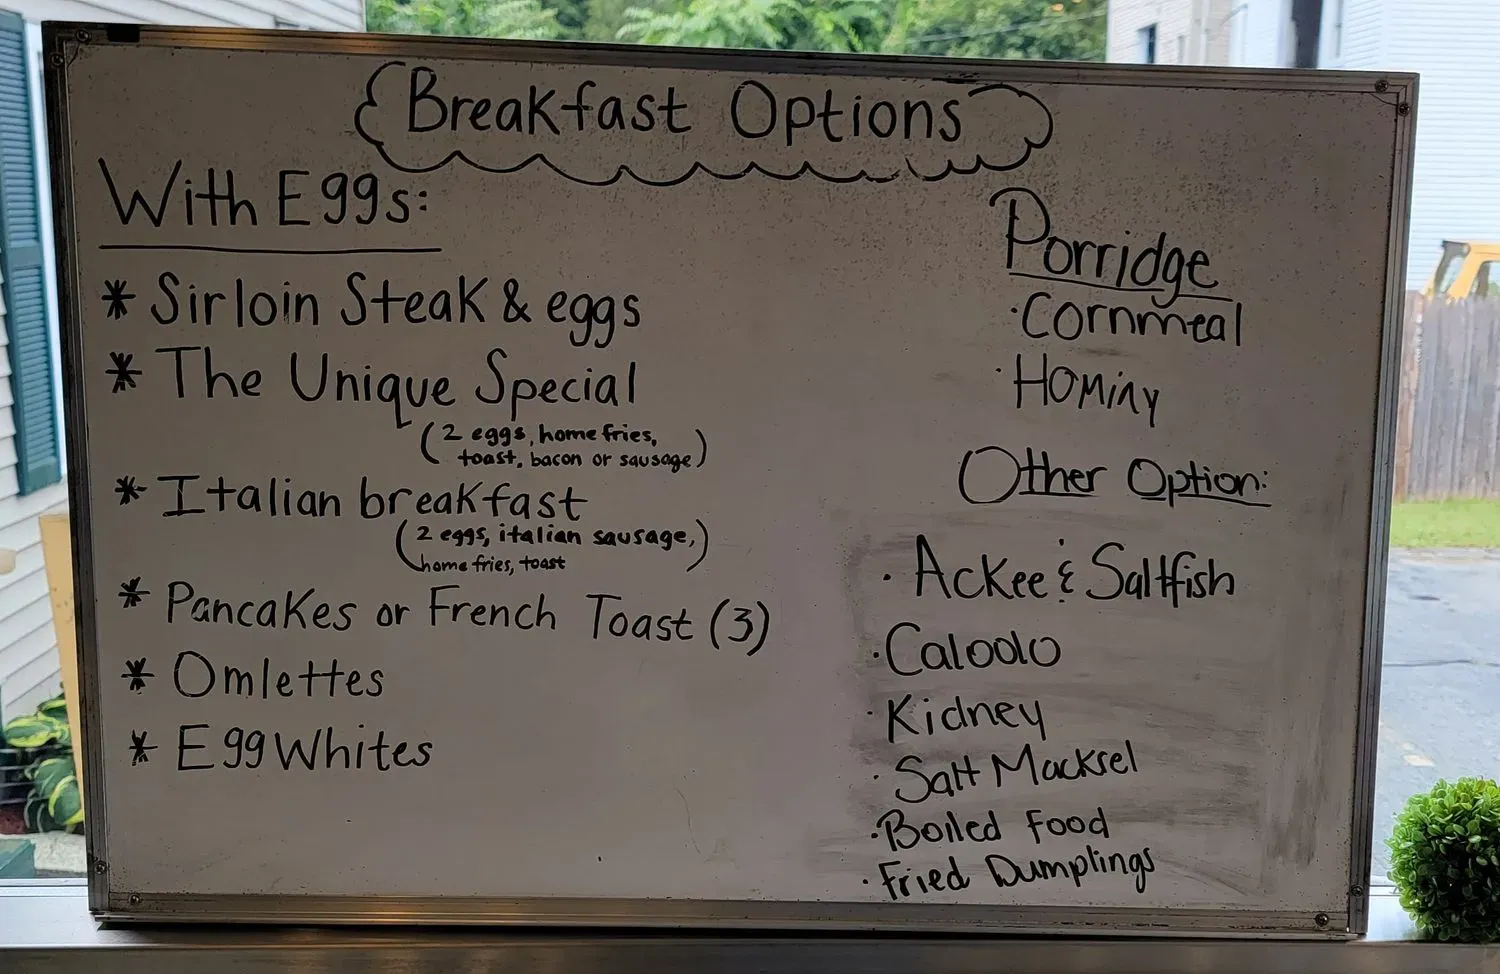 Breakfast Options
With Eggs:
* Sirloin Steak & eggs
* The Unique Special
(2 eggs, home fries,
toast, bacon or sausage)
* Italian breakfast
(2 eggs, italian sausage,)
home fries, toast
* Pancakes or French Toast (3)
* Omlettes
* Egg Whites
Porridge
· Cornmeal
· Hominy
Other Option:
· Ackee & Saltfish
· Caloolo
· Kidney
· Salt Macksel
· Boiled Food
· Fried Dumplings